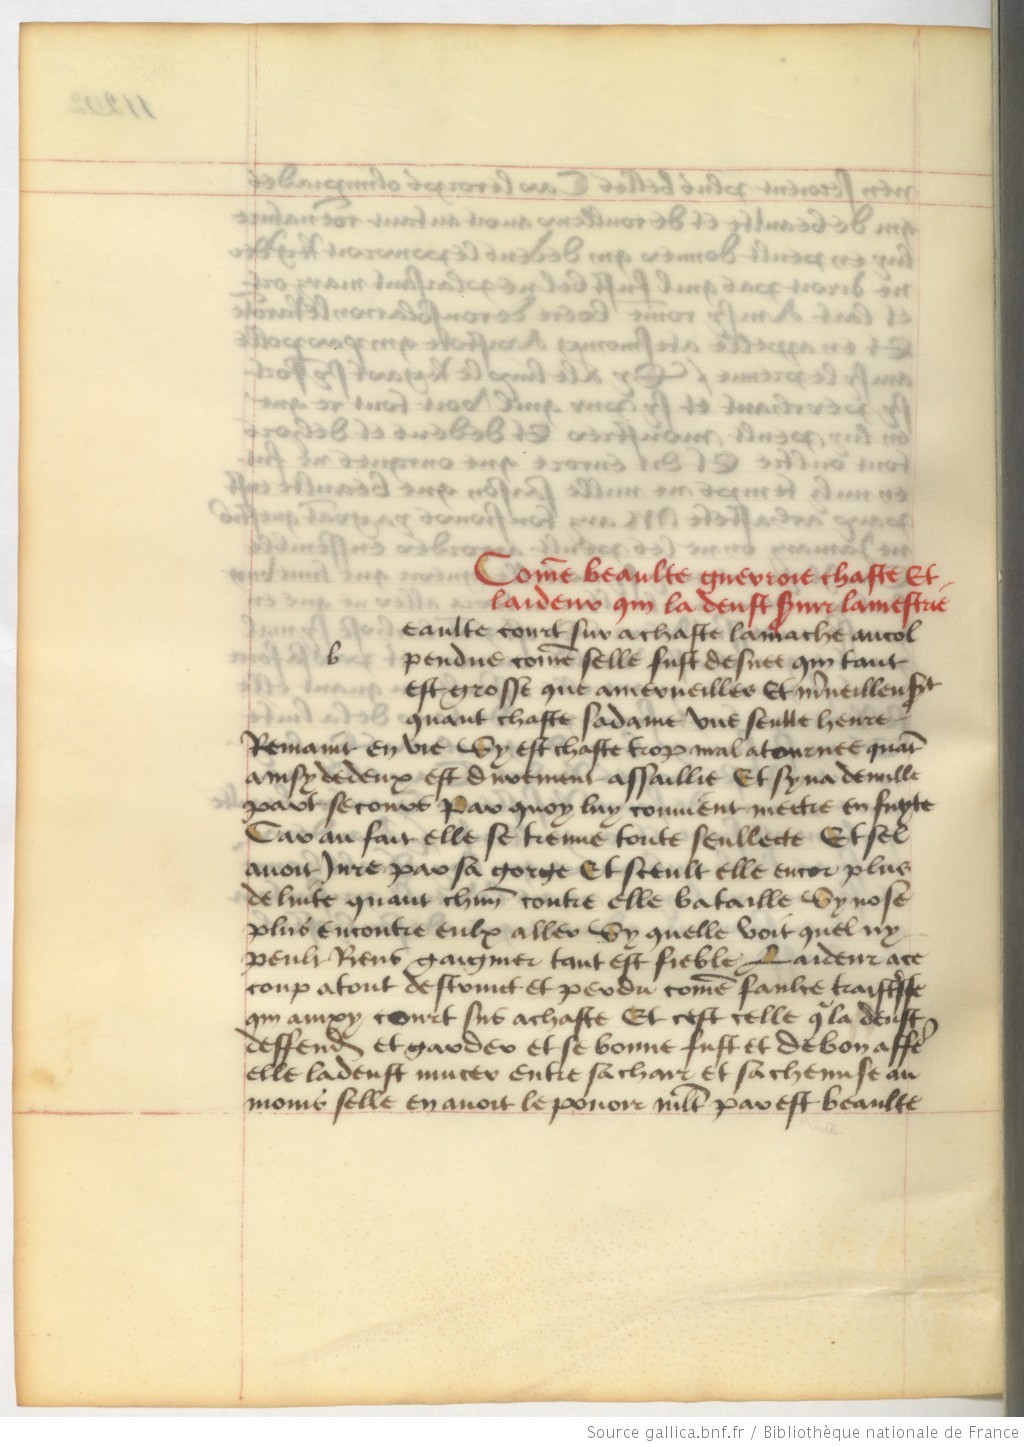 Com̃e beaulte guerroie chaste Et
laideur qui la deust servir la mestrie
eaulte court sur a chaste la mache au col
b
pendue com̃e selle fust desuee qui tant
est grosse que a merveilles Et
quant chaste sa dame une seulle heure
Remaint en vie Sy est chaste trop mal atournee quãt
ainsy de deux est durement assaillie Et sy na de nulle
part secours Par quoy luy convient mettre en fuyte
Car au fait elle se tienne toute seullette Et sel
avoit Jure par sa gorge Et sceult elle encor plus
de luite quant contre elle bataille Sy nose
plus encontre eulx aller Sy quelle voit quel ny
peult Riens gaigner tant est fieble Laideur a ce
coup a tout destruict et perdu com̃e faulce
qui ainxy court sus a chaste Et cest celle q̃ la deust
et garder et se bonne fust et de bon
elle la deust mucer entre sa chair et sa chemise au
moins selle en avoit le povoir par est beaulte
Source gallica.bnf.fr / Bibliothèque nationale de France